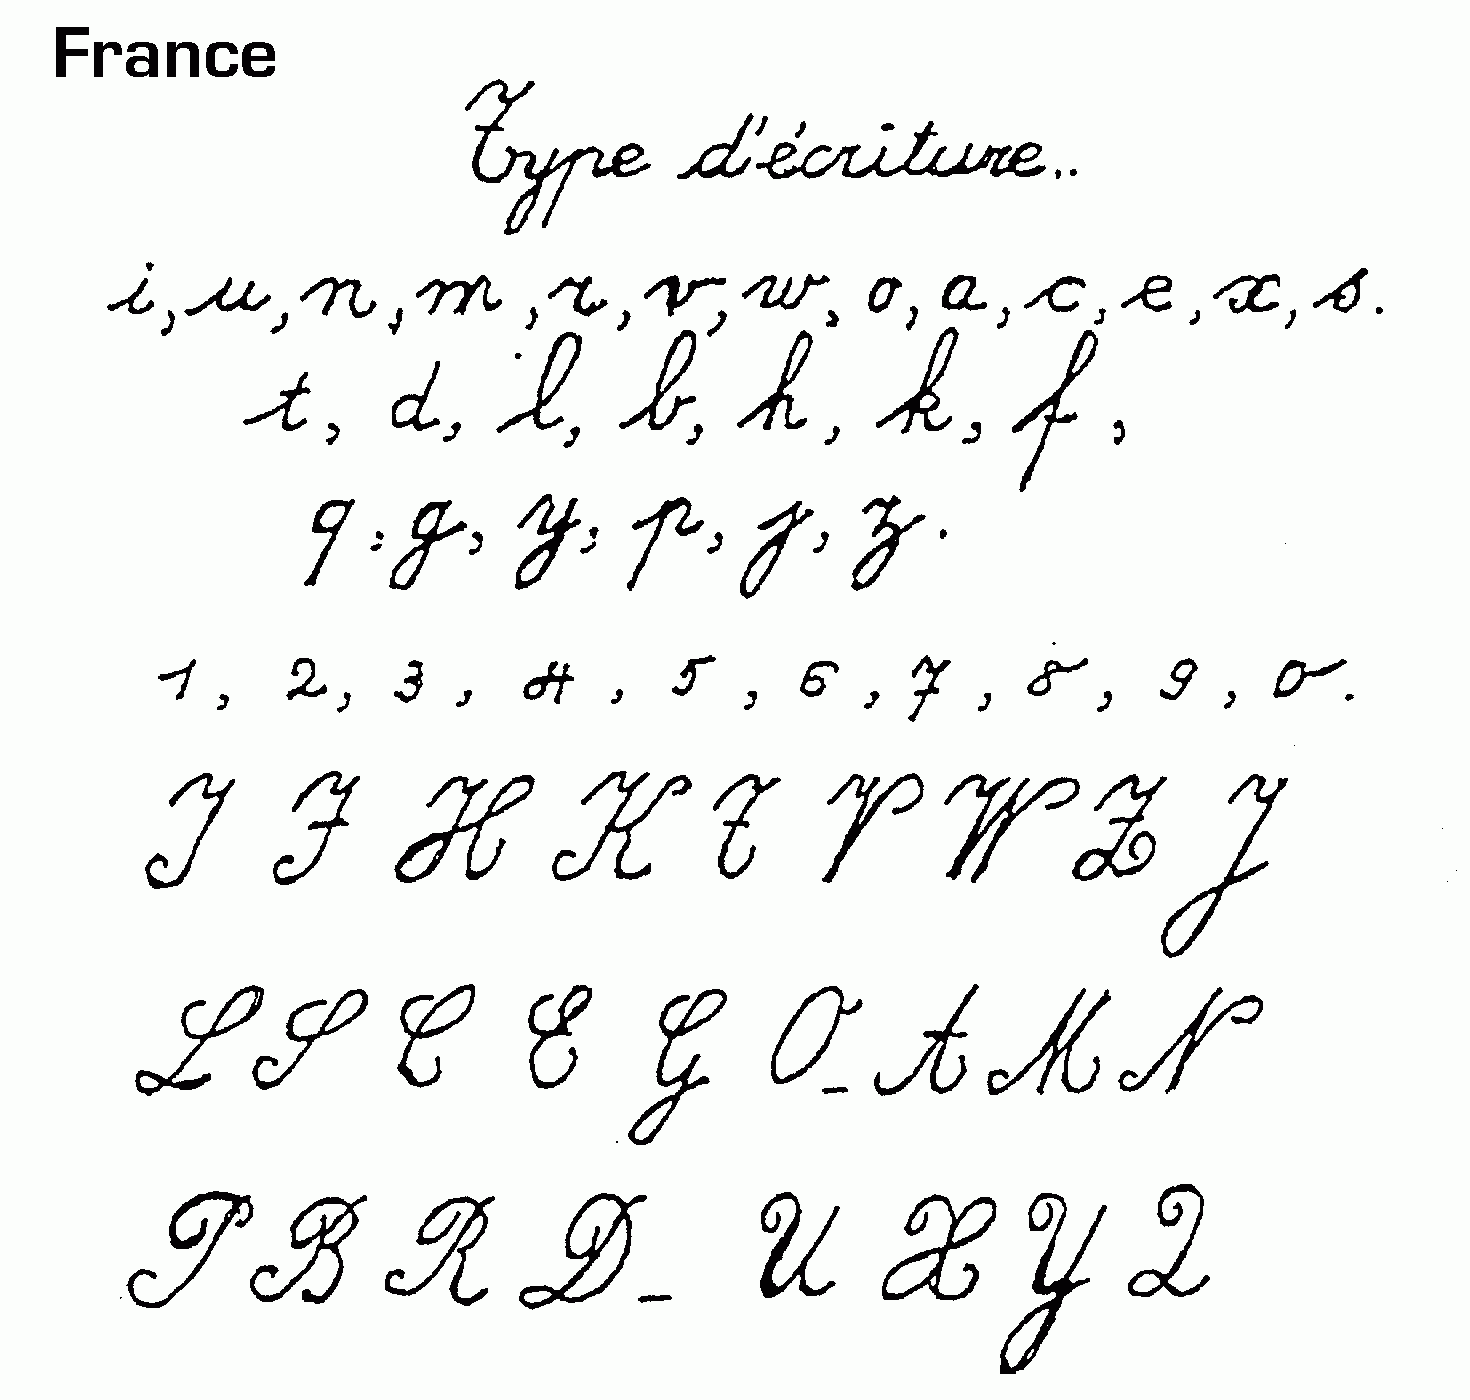 France
Type d'écriture..
i, u, n, m, r, v, w, o, a, c, e, x, s.
t, d, l, b, h, k, f,
q, g, y, p, j, z.
1, 2, 3, 4, 5, 6, 7, 8, 9, 0.
I F H K T V W Z J
L S C E G O_ A M N
P B R D_ U X Y Q